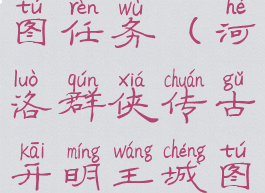 tú rèn wù hé
图任务（河
luò qún xiá chuán gǔ
洛群侠传古
kāi míng wáng chéng tú
开明王城图